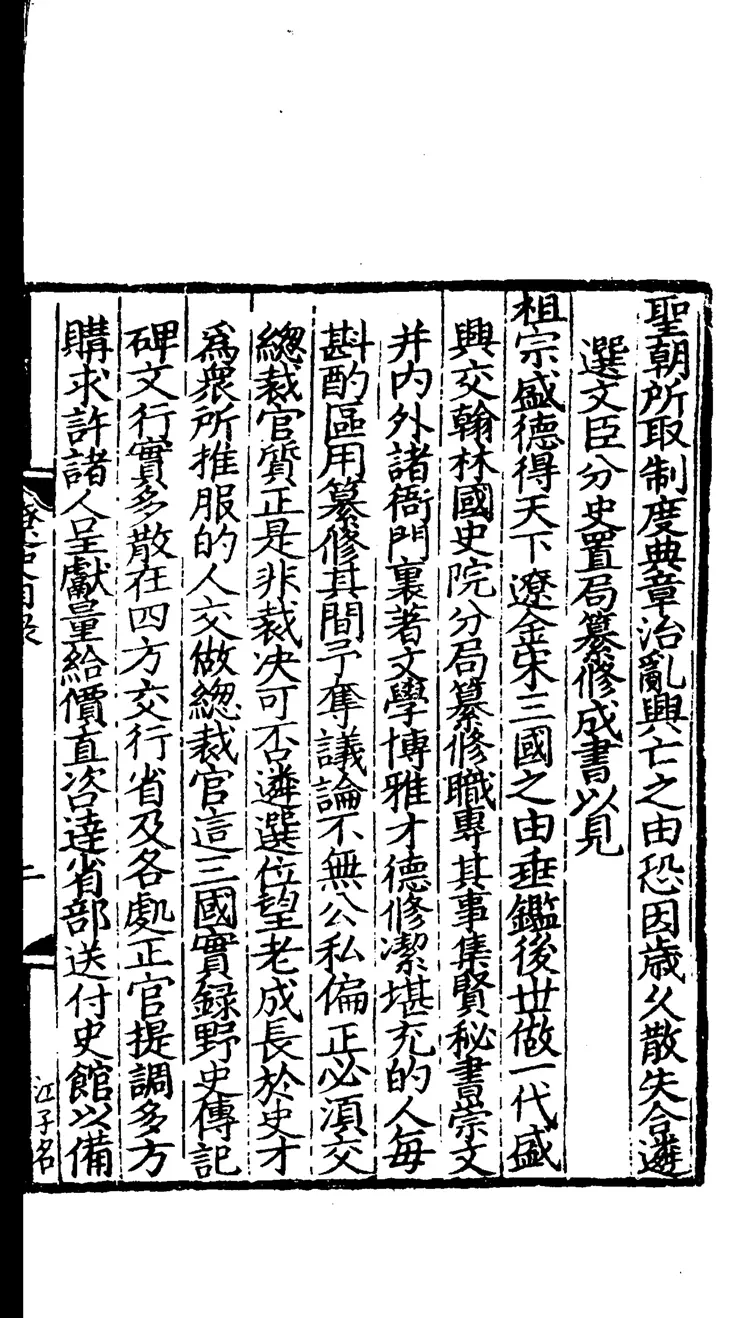 聖朝所取制度典章治亂興亡之由恐因歳久散失合遴
選文臣分史置局纂修成書以見
祖宗盛德得天下遼金宋三國之由垂鑑後世做一代盛
興交翰林國史院分局纂修職專其事集賢秘書崇文
并内外諸衙門裏著文學博雅才德修潔堪充的人每
斟酌區用纂修其間予奪議論不無公私偏正必湏交
緫裁官質正是非裁决可否遴選位望老成長於史才
爲衆所推服的人交做緫裁官這三國實録野史傳記
碑文行實多散在四方交行省及各處正官提調多方
購求許諸人呈獻量給價直咨達省部送付史館以備
江子名
二